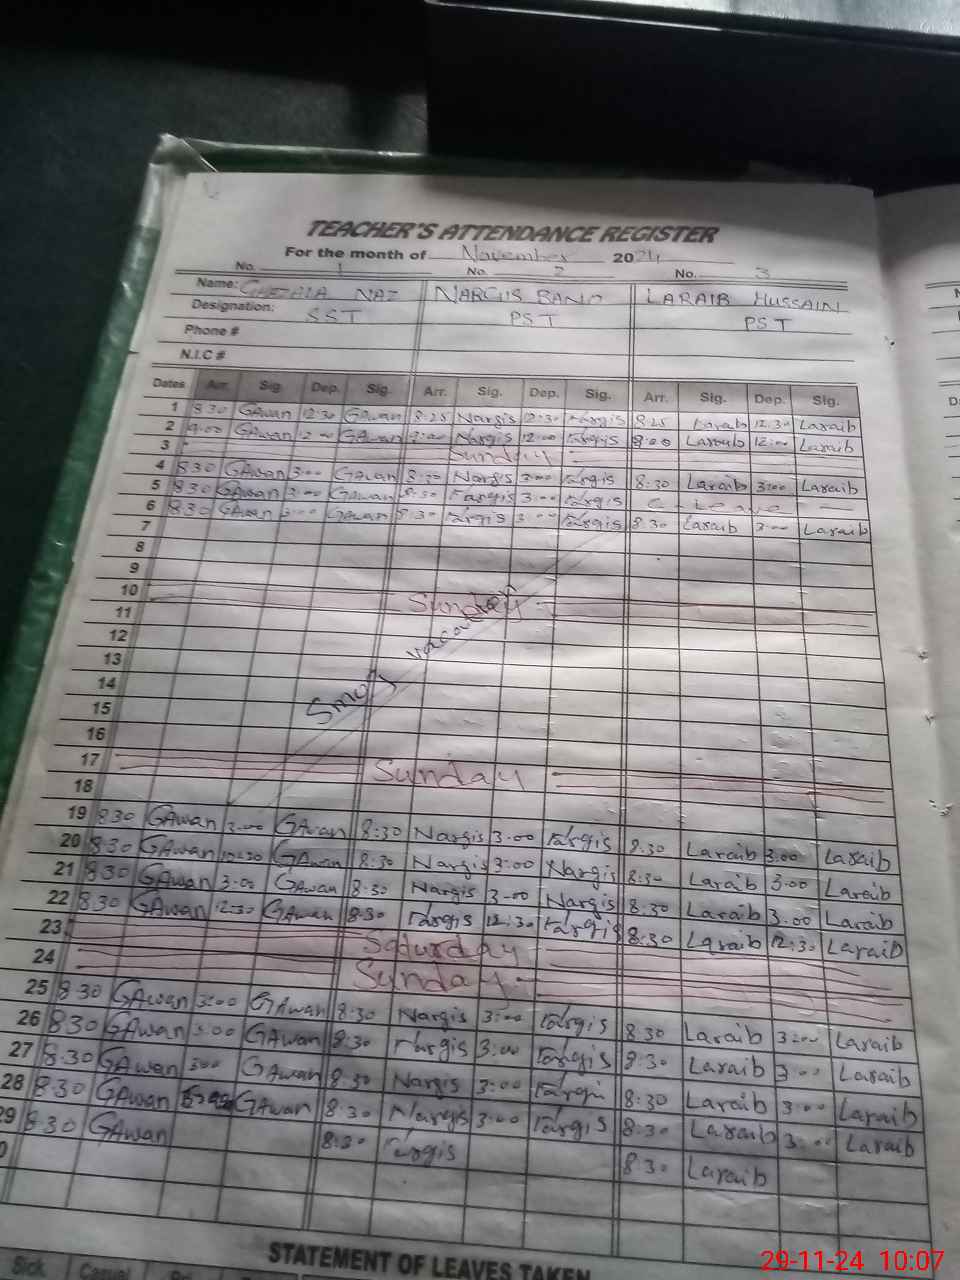 TEACHER'S ATTENDANCE REGISTER
For the month of November 2024
No. 1 No. 2 No. 3
Name: GHAZALA NAZ NARGIS BANO LARAIB HUSSAIN
Designation: SST PST PST
Phone #
N.I.C #
Dates Arr. Sig. Dep. Sig. Arr. Sig. Dep. Sig. Arr. Sig. Dep. Sig.
1 8:30 GAwan 12:30 GAwan 8:25 Nargis 12:30 Nargis 8:25 Laraib 12:30 Laraib
2 9:00 GAwan 12:00 GAwan Nargis 12:00 Nargis 8:00 Laraib 12:00 Laraib
3 Sunday
4 8:30 GAwan 3:00 GAwan 8:30 Nargis 3:00 Nargis 8:30 Laraib 3:00 Laraib
5 8:30 GAwan 3:00 GAwan 8:30 Nargis 3:00 Nargis C-Leave
6 8:30 GAwan 3:00 GAwan 8:30 Nargis 3:00 Nargis 8:30 Laraib 3:00 Laraib
7
8
9
10 Sunday
11
12
13
Smog vacation
14
15
16
17 Sunday
18
19 8:30 GAwan 3:00 GAwan 8:30 Nargis 3:00 Nargis 8:30 Laraib 3:00 Laraib
20 8:30 GAwan 12:30 GAwan 8:30 Nargis 3:00 Nargis 8:30 Laraib 3:00 Laraib
21 8:30 GAwan 3:00 GAwan 8:30 Nargis 3:00 Nargis 8:30 Laraib 3:00 Laraib
22 8:30 GAwan 12:30 GAwan 8:30 Nargis 12:30 Nargis 8:30 Laraib 12:30 Laraib
23 Saturday
24 Sunday
25 8:30 GAwan 3:00 GAwan 8:30 Nargis 3:00 Nargis 8:30 Laraib 3:00 Laraib
26 8:30 GAwan 3:00 GAwan 8:30 Nargis 3:00 Nargis 8:30 Laraib 3:00 Laraib
27 8:30 GAwan 3:00 GAwan 8:30 Nargis 3:00 Nargis 8:30 Laraib 3:00 Laraib
28 8:30 GAwan GAwan 8:30 Nargis 3:00 Nargis 8:30 Laraib 3:00 Laraib
29 8:30 GAwan 8:30 Nargis 8:30 Laraib
STATEMENT OF LEAVES TAKEN
Sick Casual
29-11-24 10:07